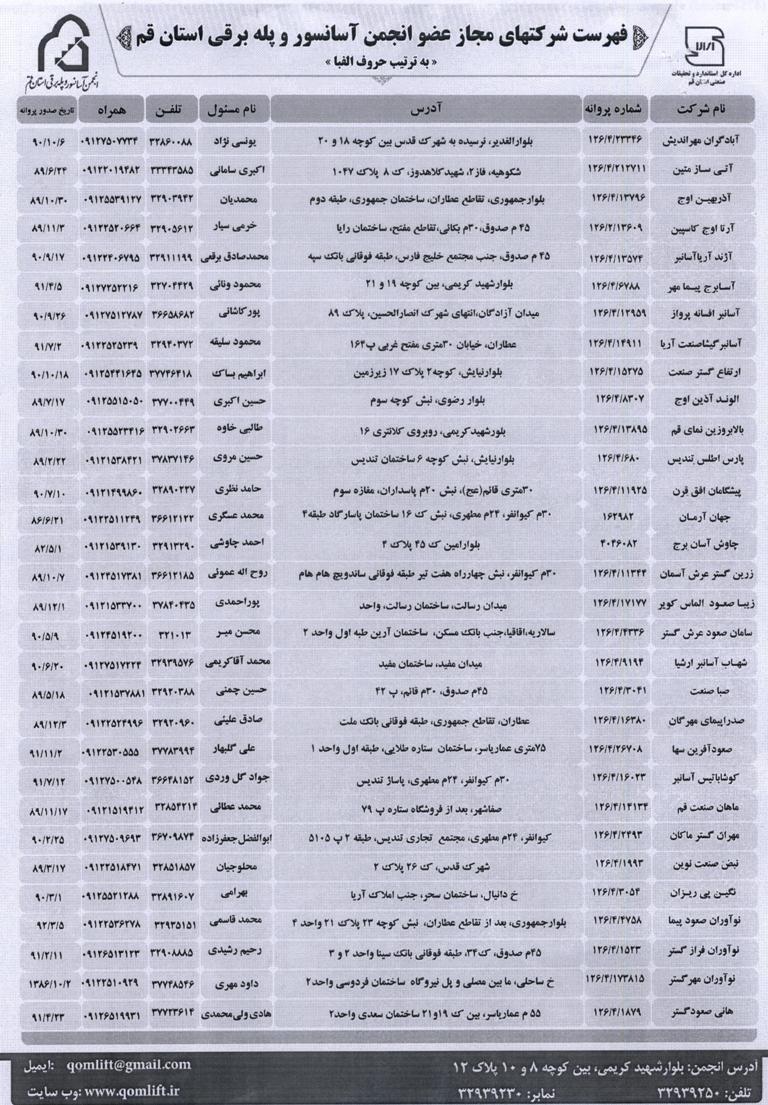 فهرست شرکتهای مجاز عضو انجمن آسانسور و پله برقی استان قم
« به ترتیب حروف الفبا »
اداره کل استاندارد و تحقیقات
صنعتی استان قم
انجمن آسانسور و پله برقی استان قم
نام شرکت شماره پروانه آدرس نام مسئول تلفن همراه تاریخ صدور پروانه
آبادگران مهراندیش ۱۲۶/۴/۲۳۳۴۶ بلوارالغدیر، نرسیده به شهرک قدس بین کوچه ۱۸ و ۲۰ یونسی نژاد ۳۲۸۶۰۰۸۸ ۰۹۱۲۷۵۰۷۷۳۴ ۹۰/۱۰/۶
آتی ساز متین ۱۲۶/۴/۲۱۲۷۱۱ شکوهیه، فاز۲، شهیدکلاهدوز، ک ۸ پلاک ۱۰۴۷ اکبری سامانی ۳۳۳۴۳۵۸۵ ۰۹۱۲۲۰۱۹۴۸۲ ۸۹/۶/۲۴
آذربهین اوج ۱۲۶/۴/۱۳۷۹۶ بلوارجمهوری، تقاطع عطاران، ساختمان جمهوری، طبقه دوم محمدیان ۳۲۹۰۳۹۴۲ ۰۹۱۲۵۵۳۹۱۲۷ ۸۹/۱۰/۳۰
آرتا اوج کاسپین ۱۲۶/۴/۱۳۶۰۹ ۴۵ م صدوق، ۳۰م بکائی،تقاطع مفتح، ساختمان رایا خرمی سیار ۳۲۹۰۵۶۱۲ ۰۹۱۲۲۵۲۰۶۶۴ ۸۹/۱۱/۳
آژند آریاآسانبر ۱۲۶/۴/۱۳۵۷۴ ۴۵ م صدوق، جنب مجتمع خلیج فارس، طبقه فوقانی بانک سپه محمدصادق برقعی ۳۲۹۱۱۱۹۹ ۰۹۱۲۲۴۰۶۷۹۵ ۹۰/۹/۱۷
آسابرج پیما مهر ۱۲۶/۴/۶۷۸۸ بلوارشهید کریمی، بین کوچه ۱۹ و ۲۱ محمود وثائی ۳۲۷۰۴۴۲۹ ۰۹۱۲۷۲۵۲۲۱۶ ۹۱/۴/۵
آسانبر افسانه پرواز ۱۲۶/۴/۱۲۹۵۹ میدان آزادگان،انتهای شهرک انصارالحسین، پلاک ۸۹ پورکاشانی ۳۶۶۵۸۶۸۲ ۰۹۱۲۷۵۱۲۷۸۷ ۹۰/۹/۲۶
آسانبرگیتاصنعت آریا ۱۲۶/۴/۱۴۹۱۱ عطاران، خیابان ۳۰متری مفتح غربی پ۱۶۴ محمود سلیقه ۳۲۹۴۰۳۷۲ ۰۹۱۲۲۵۲۵۲۳۹ ۹۱/۷/۲
ارتفاع گستر صنعت ۱۲۶/۴/۱۵۲۷۵ بلوارنیایش، کوچه۲ پلاک ۱۷ زیرزمین ابراهیم بساک ۳۷۷۴۶۴۱۸ ۰۹۱۲۵۴۴۱۶۴۵ ۹۰/۱۰/۱۸
الوند آذین اوج ۱۲۶/۴/۸۳۰۷ بلوار رضوی، نبش کوچه سوم حسین اکبری ۳۷۷۰۰۴۴۹ ۰۹۱۲۵۵۱۵۰۵۰ ۸۹/۷/۱۷
بالابروزین نمای قم ۱۲۶/۴/۱۳۸۹۵ بلورشهیدکریمی، روبروی کلانتری ۱۶ طالبی خاوه ۳۲۹۰۲۶۶۳ ۰۹۱۲۵۵۲۳۴۱۶ ۸۹/۱۰/۳۰
پارس اطلس تندیس ۱۲۶/۴/۶۸۰ بلوارنیایش، نبش کوچه ۶ ساختمان تندیس حسین مروی ۳۷۸۳۷۱۴۶ ۰۹۱۲۱۵۳۸۴۲۱ ۸۹/۲/۲۲
پیشگامان افق قرن ۱۲۶/۴/۱۱۹۲۵ ۳۰متری قائم(عج)، نبش ۲۰م پاسداران، مغازه سوم حامد نظری ۳۲۸۹۰۲۲۷ ۰۹۱۲۱۴۹۹۸۶۰ ۹۰/۷/۱۰
جهان آرمان ۱۶۲۹۸۲ ۳۰م کیوانفر، ۲۴م مطهری، نبش ک ۱۶ ساختمان پاسارگاد طبقه۴ محمد عسگری ۳۶۶۱۲۱۲۲ ۰۹۱۲۲۵۱۱۲۴۹ ۸۶/۶/۲۱
چاوش آسان برج ۴۰۴۶۰۸۲ بلوارامین ک ۴۵ پلاک ۴ احمد چاوشی ۳۲۹۱۳۲۹۰ ۰۹۱۲۱۵۳۹۱۳۰ ۸۲/۵/۱
زرین گستر عرش آسمان ۱۲۶/۴/۱۱۳۴۴ ۳۰م کیوانفر، نبش چهارراه هفت تیر طبقه فوقانی ساندویچ هام هام روح اله عموئی ۳۶۶۱۲۱۸۵ ۰۹۱۲۴۵۱۷۳۸۱ ۸۹/۱۰/۷
زیبا صعود الماس کویر ۱۲۶/۴/۱۷۱۷۷ میدان رسالت، ساختمان رسالت، واحد پوراحمدی ۳۷۸۴۰۴۳۵ ۰۹۱۲۱۵۳۳۷۰۰ ۸۹/۱۲/۱
سامان صعود عرش گستر ۱۲۶/۴/۴۳۳۶ سالاریه،اقاقیا،جنب بانک مسکن، ساختمان آرین طبه اول واحد ۲ محسن میر ۳۲۱۰۱۳ ۰۹۱۲۴۵۱۹۲۰۰ ۹۰/۵/۹
شهاب آسانبر ارشیا ۱۲۶/۴/۹۱۹۴ میدان مفید، ساختمان مفید محمد آقاکریمی ۳۲۹۳۹۵۷۶ ۰۹۱۲۷۵۱۷۲۲۴ ۹۰/۶/۲۰
صبا صنعت ۱۲۶/۴/۳۰۴۱ ۴۵م صدوق، ۳۰م قائم، پ ۴۲ حسین چمنی ۳۲۹۲۰۳۸۸ ۰۹۱۲۱۵۳۷۸۸۱ ۸۹/۵/۱۸
صدراپیمای مهرگان ۱۲۶/۴/۱۶۳۸۰ عطاران، تقاطع جمهوری، طبقه فوقانی بانک ملت صادق علیئی ۳۲۹۲۰۹۶۰ ۰۹۱۲۲۵۲۴۹۹۶ ۸۹/۱۲/۳
صعودآفرین سها ۱۲۶/۴/۲۶۷۰۸ ۷۵متری عماریاسر، ساختمان ستاره طلایی، طبقه اول واحد ۱ علی گلبهار ۳۷۷۸۳۹۹۴ ۰۹۱۲۲۵۳۰۵۵۵ ۹۱/۱۱/۲
کوشاباتیس آسانبر ۱۲۶/۴/۱۶۰۲۳ ۳۰م کیوانفر، ۲۴م مطهری، پاساژ تندیس جواد گل وردی ۳۶۶۴۸۱۵۲ ۰۹۱۲۷۵۰۰۵۴۸ ۹۱/۷/۱۲
ماهان صنعت قم ۱۲۶/۴/۱۴۱۳۴ صفاشهر، بعد از فروشگاه ستاره پ ۷۹ محمد عطائی ۳۲۸۵۴۲۱۴ ۰۹۱۲۱۵۱۹۴۱۲ ۸۹/۱۱/۱۷
مهران گستر ماکان ۱۲۶/۴/۲۴۹۳ کیوانفر، ۲۴م مطهری، مجتمع تجاری تندیس، طبقه ۲ پ ۵۱۰۵ ابوالفضل جعفرزاده ۳۶۷۰۹۸۷۴ ۰۹۱۲۷۵۰۹۶۹۳ ۹۰/۲/۲۵
نبض صنعت نوین ۱۲۶/۴/۱۹۹۳ شهرک قدس، ک ۲۶ پلاک ۲ محلوجیان ۳۲۸۵۱۸۵۷ ۰۹۱۲۲۵۱۸۴۷۱ ۸۹/۳/۱۷
نگین پی ریزان ۱۲۶/۴/۳۰۵۴ خ دانیال، ساختمان سحر، جنب املاک آریا بهرامی ۳۲۸۹۱۶۰۷ ۰۹۱۲۵۵۲۱۲۸۸ ۹۰/۳/۱
نوآوران صعود پیما ۱۲۶/۴/۴۷۵۸ بلوارجمهوری، بعد از تقاطع عطاران، نبش کوچه ۲۳ پلاک ۲۱ واحد ۴ محمد قاسمی ۳۲۹۳۵۱۵۱ ۰۹۱۲۲۵۳۶۲۷۸ ۹۲/۳/۵
نوآوران فراز گستر ۱۲۶/۴/۱۵۲۳ ۴۵م صدوق، ک۳۴، طبقه فوقانی بانک سینا واحد ۲ و ۳ رحیم رشیدی ۳۲۹۰۸۸۸۵ ۰۹۱۲۶۵۱۳۱۲۳ ۹۱/۲/۱۱
نوآوران مهرگستر ۱۲۶/۴/۱۷۳۸۱۵ خ ساحلی، ما بین مصلی و پل نیروگاه ساختمان فردوسی واحد۲ داود مهری ۳۷۷۴۸۵۴۶ ۰۹۱۲۲۵۱۰۹۲۹ ۱۳۸۶/۱۰/۲
هانی صعودگستر ۱۲۶/۴/۱۸۷۹ ۵۵ م عماریاسر، بین ک ۱۹و۲۱ ساختمان سعدی واحد۲ هادی ولی محمدی ۳۷۷۲۳۶۱۴ ۰۹۱۲۶۵۱۹۹۳۱ ۹۱/۴/۲۳
آدرس انجمن: بلوارشهید کریمی، بین کوچه ۸ و ۱۰ پلاک ۱۲
ایمیل: qomlift@gmail.com
تلفن: ۳۲۹۳۹۲۵۰ نمابر: ۳۲۹۳۹۲۳۰
وب سایت: www.qomlift.ir